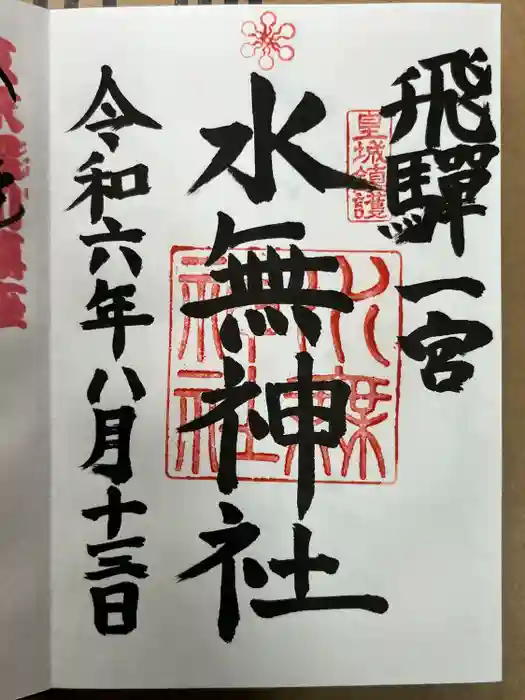 飛驒一宮
皇城鎮護
水無神社
水無神社
令和六年八月十三日